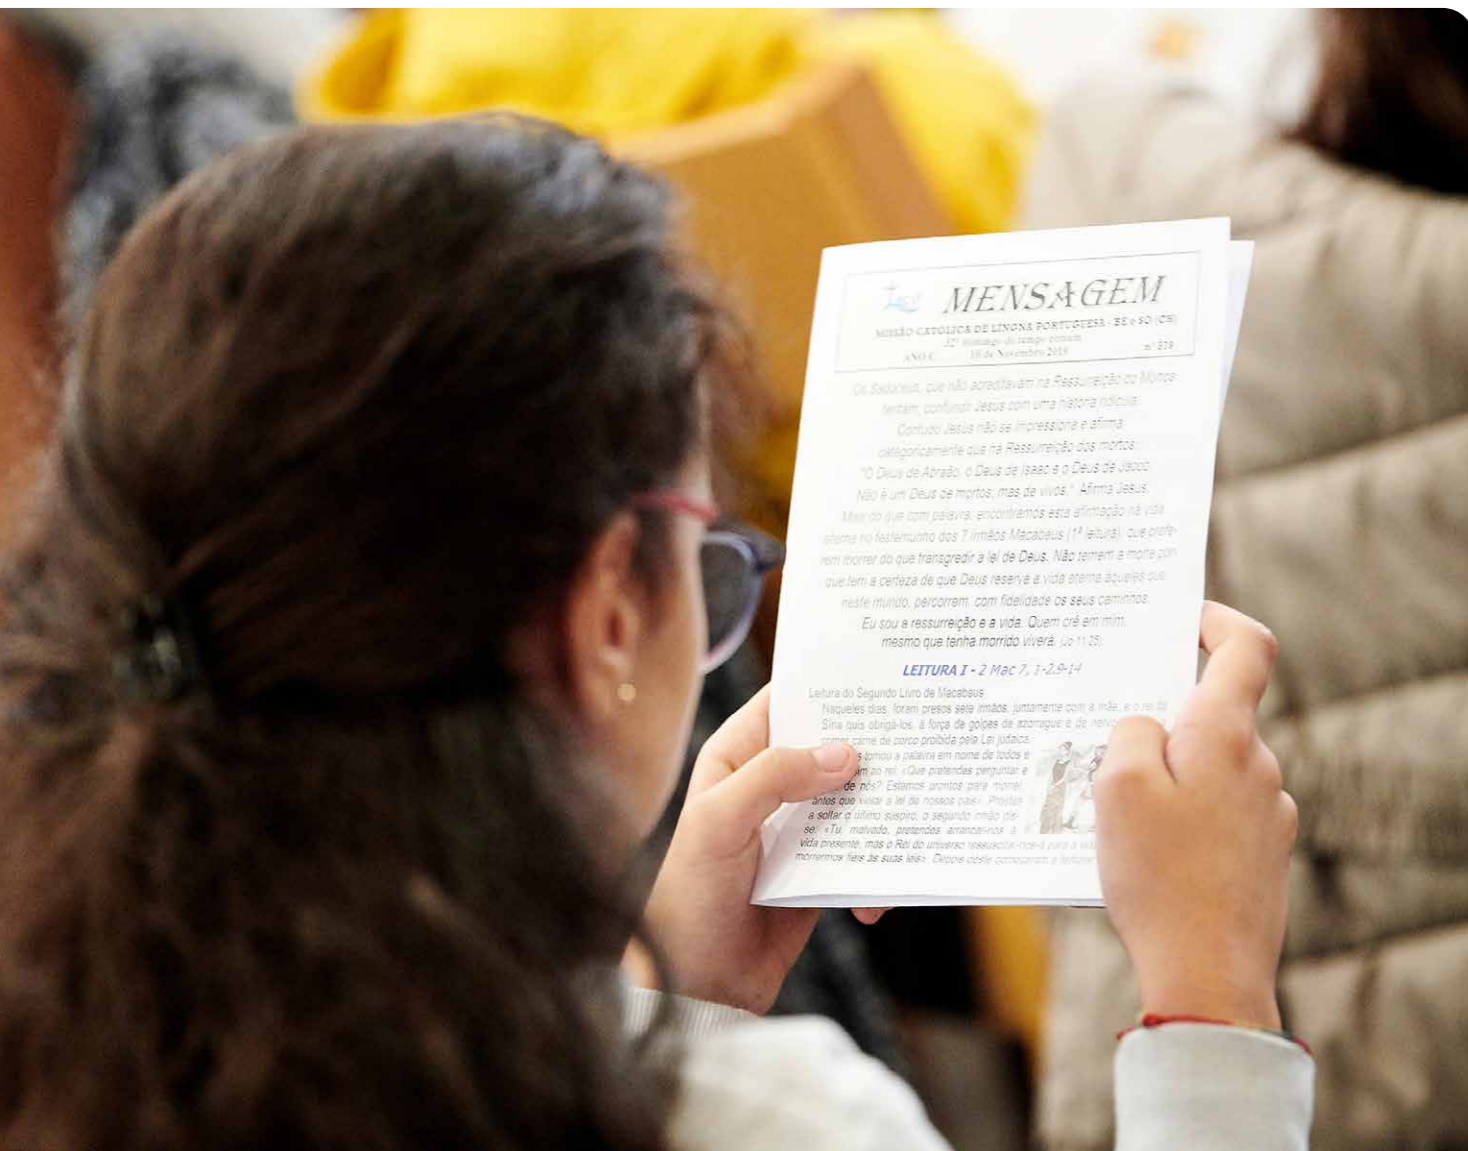 MENSAGEM
MISSÃO CATÓLICA DE LÍNGNA PORTUGUESA - BE e SO (CH)
32º domingo do tempo comum
ANO C 10 de Novembro 2019 nº 829
Os Saduceus, que não acreditavam na Ressurreição do Mortos
tentam, confundir Jesus com uma história ridícula.
Contudo Jesus não se impressiona e afirma
categoricamente que há Ressurreição dos mortos:
"O Deus de Abraão, o Deus de Isaac e o Deus de Jacob
Não é um Deus de mortos, mas de vivos." Afirma Jesus.
Mais do que com palavra, encontramos esta afirmação na vida
eterna no testemunho dos 7 irmãos Macabeus (1ª leitura), que prefe-
rem morrer do que transgredir a lei de Deus. Não temem a morte por-
que tem a certeza de que Deus reserva a vida eterna àqueles que,
neste mundo, percorrem, com fidelidade os seus caminhos.
Eu sou a ressurreição e a vida. Quem crê em mim,
mesmo que tenha morrido viverá. (Jo 11 25).
LEITURA I - 2 Mac 7, 1-2.9-14
Leitura do Segundo Livro de Macabeus
Naqueles dias, foram presos sete irmãos, juntamente com a mãe, e o rei da
Síria quis obrigá-los, à força de golpes de azorrague e de nervo
comer carne de porco proibida pela Lei judaica.
s tomou a palavra em nome de todos e
ao rei: «Que pretendes perguntar e
de nós? Estamos prontos para morrer
antes que violar a lei de nossos pais». Prestes
a soltar o último suspiro, o segundo irmão dis-
se: «Tu, malvado, pretendes arrancar-nos a
vida presente, mas o Rei do universo ressuscitar-nos-á para a vida
morrermos fiéis às suas leis». Depois deste começaram a torturar